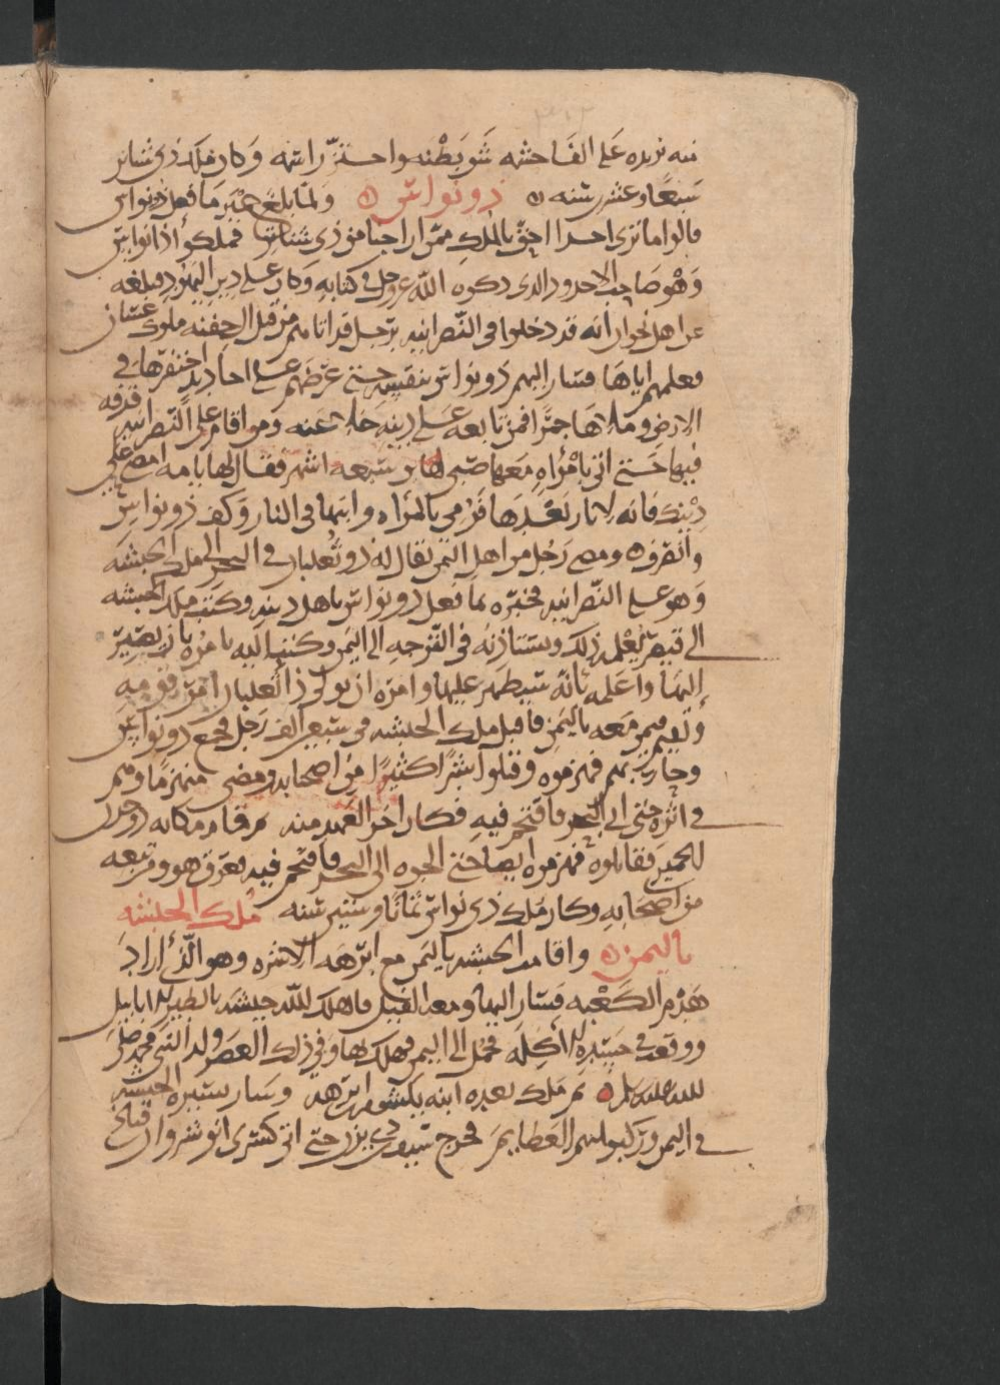 منه يريده على الفاحشه شق بطنه واحتز راسه وكان ملك ذي شناتر
سبعًا وعشرين سنه ذو نواس ولما بلغ حمير ما فعل ذو نواس
قالوا ما نرى احدا احق بالملك ممن اراحنا من ذي شناتر فملكوا ذا نواس
وهو صاحب الاخدود الذي ذكره الله عز وجل في كتابه وكان على دين اليهود فبلغه
عن اهل نجران انه قد دخلوا في النصرانيه برجل قد اتاهم من قبل ال جفنه ملوك غسان
فعلمهم اياها فسار اليهم ذو نواس بنفسه حتى عرضهم على اخاديد احتفرها في
الارض وملاها جمرًا فمن تابعه على دينه خلا عنه ومن اقام على النصرانيه قذفه
فيها حتى اتي بامراه معها صبي لها بن سبعه اشهر فقال لها يا مه امض على
دينك فانه لا نار بعدها فرمي بالمراه وابنها في النار وكف ذو نواس
وانصرف ومضى رجل من اهل اليمن يقال له ذو ثعلبان في البحر الى ملك الحبشه
وهو على النصرانيه فخبره بما فعل ذو نواس باهل دينه وكتب ملك الحبشه
الى قيصر يعلمه ذلك ويستاذنه في التوجه الى اليمن وكتب اليه يامره بان يصير
اليها واعلمه بانه سيظهر عليها وامره ان يولي ذا ثعلبان امر قومه
ويقيم فيمن معه باليمن فاقبل ملك الحبشه في سبعين الف رجل فجمع ذو نواس
وحاربهم فهزموه وقتلوا بشرًا كثيرًا من اصحابه ومضى منهزمًا وهم
في اثره حتى اتى البحر فاقتحم فيه فكان اخر العهد منه ثم قام مكانه ذو جدن
الحميري فقاتلوه فهزموه ايضا حتى الجوه الى البحر فاقتحم فيه فغرق هو ومن تبعه
من اصحابه وكان ملك ذي نواس ثمانًا وستين سنه ملك الحبشه
باليمن واقامت الحبشه باليمن مع ابرهه الاشرم وهو الذي اراد
هدم الكعبه فسار اليها ومعه الفيل فاهلك الله جيشه بالطير الابابيل
ووقعت في جسده الاكله فحمل الى اليمن فهلك بها وفي ذلك العصر ولد النبي محمد صلى
الله عليه وسلم ثم ملك بعده ابنه يكسوم بن ابرهه وسار سيره الحبشه
في اليمن وركبوا منهم العظايم فخرج سيف بن ذي يزن حتى اتى كسرى انوشروان قباذ